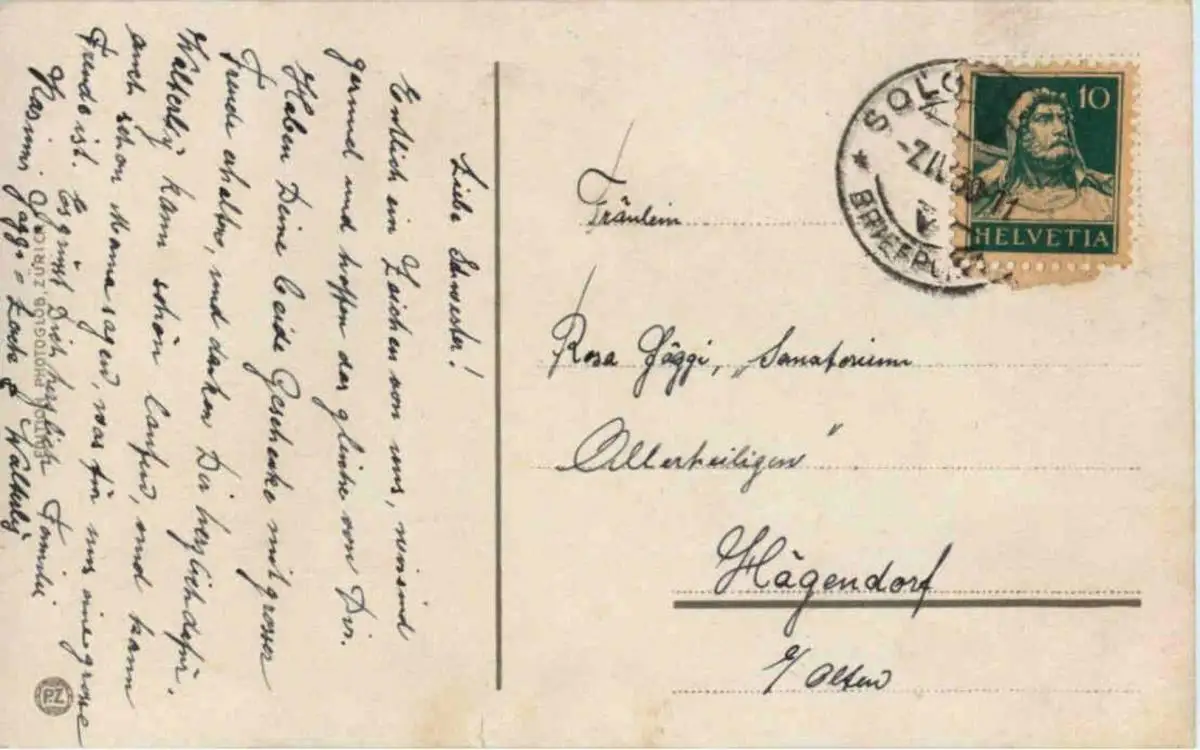 Liebe Schwester!
Entlich ein Zeichen von uns, wir sind
gesund und hoffen das gleiche von Dir.
Haben Deine beide Geschenke mit grosser
Freude erhalten, und danken Dir herzlich dafür.
Walterly kann schön laufen, und kann
auch schon Mama sagen, was für uns eine grosse
Freude ist. Es grüsst Dich herzlich Familie
Jäggi = & Walterly
PHOTOGLOB, ZÜRICH
PZ
Fräulein
Rosa Jäggi, „Sanatorium
Allerheiligen"
Hägendorf
b/ Olten
SOLO
BRIEF
10
HELVETIA